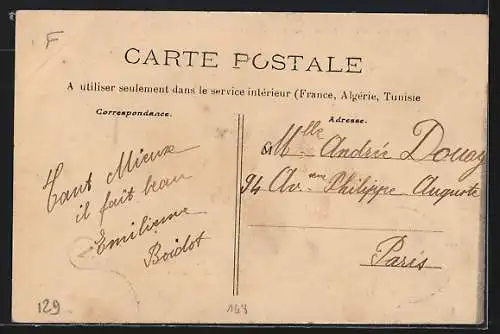 F
CARTE POSTALE
A utiliser seulement dans le service intérieur (France, Algérie, Tunisie
Correspondance.
Tant Mieux
il fait beau
Emilienne
Boidot
Adresse.
Mlle Andrée Douay
94 Av Philippe Auguste
Paris
129